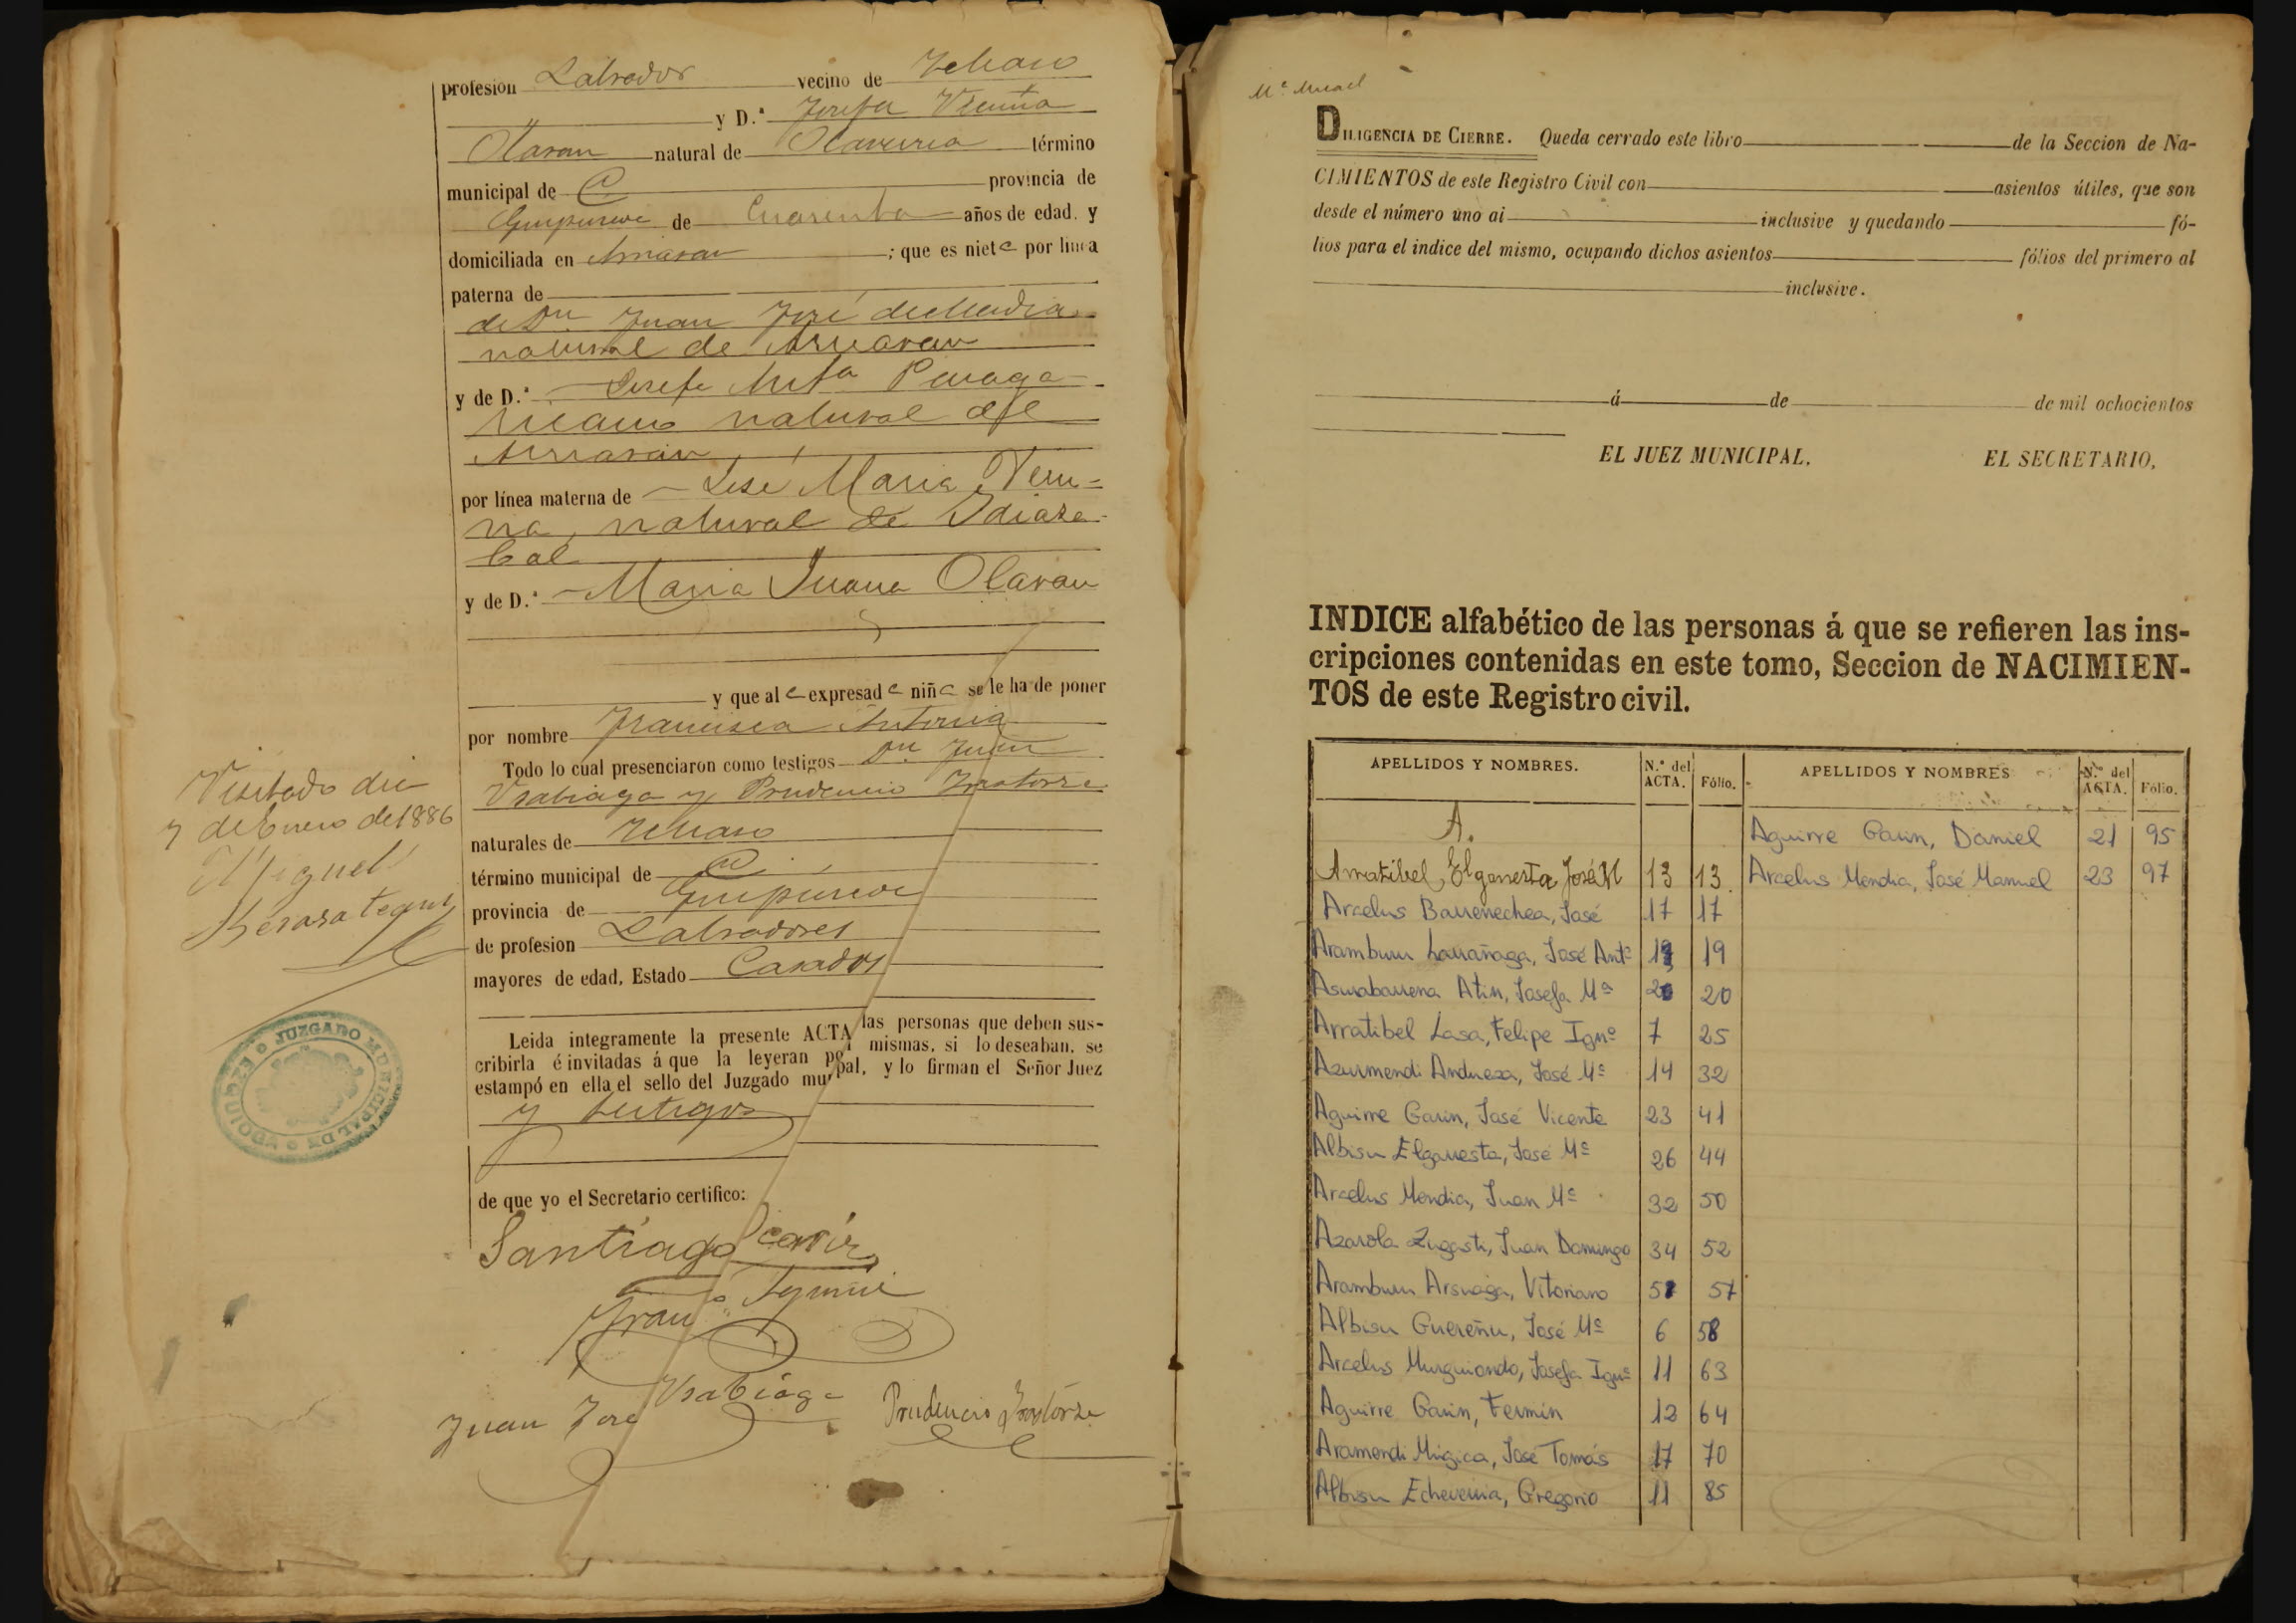 profesion Labrador vecino de Ichaso
y D.ª Josefa Vicuña
Olaran natural de Olaverria término
municipal de id provincia de
Guipuzcoa de Cuarenta años de edad, y
domiciliada en Arriaran ; que es nieta por línea
paterna de
de Dn. Juan José de Mendia
natural de Arriaran
y de D.ª Josefa Antª
natural de
Arriaran
por línea materna de José Maria Vicu-
ña, natural de Idiaza-
bal
y de D.ª Maria Juana Olaran
y que al a expresada niña se le ha de poner
por nombre Francisca Antonia
Todo lo cual presenciaron como testigos Dn. Juan
Usabiaga y Prudencio Irastorza
naturales de Ichaso
término municipal de id
provincia de Guipúzcoa
de profesion Labradores
mayores de edad, Estado Casados
Leida integramente la presente ACTA las personas que deben sus-
cribirla é invitadas á que la leyeran por mismas, si lo deseaban, se
estampó en ella el sello del Juzgado mu pal, y lo firman el Señor Juez
y testigos
de que yo el Secretario certifico:
Santiago
Franº
Juan José Usabiaga Prudencio Irastorza
Visitado dia
7 de Enero de 1886
Miguel
Berasategui
JUZGADO MUNICIPAL DE EZQUIOGA
Mª
DILIGENCIA DE CIERRE. Queda cerrado este libro de la Seccion de Na-
CIMIENTOS de este Registro Civil con asientos útiles, que son
desde el número uno al inclusive y quedando fó-
lios para el indice del mismo, ocupando dichos asientos fólios del primero al
inclusive.
á de de mil ochocientos
EL JUEZ MUNICIPAL, EL SECRETARIO,
INDICE alfabético de las personas á que se refieren las ins-
cripciones contenidas en este tomo, Seccion de NACIMIEN-
TOS de este Registro civil.
APELLIDOS Y NOMBRES. N.º del ACTA. Fólio. APELLIDOS Y NOMBRES N.º del ACTA. Fólio.
A.
Aguirre Garin, Daniel 21 95
Arratibel, Elgarresta José M 13 13 Arcelus Mendia, José Manuel 23 97
Arcelus Barrenechea, José 17 17
Aramburu Larrañaga, José Antº 19 19
Asurabarrena Atin, Josefa Mª 20 20
Arratibel Lasa, Felipe Ignº 7 25
Azurmendi Andueza, José Mª 14 32
Aguirre Garin, José Vicente 23 41
Albisu Elgarresta, José Mª 26 44
Arcelus Mendia, Juan Mª 32 50
Azarola Zugasti, Juan Domingo 34 52
Aramburu Arsuaga, Vitoriano 57
Albisu Guereñu, José Mª 6 58
Arcelus Murguiondo, Josefa Ignª 11 63
Aguirre Garin, Fermín 12 64
Aramendi Múgica, José Tomás 17 70
Albisu Echeverria, Gregorio 11 85